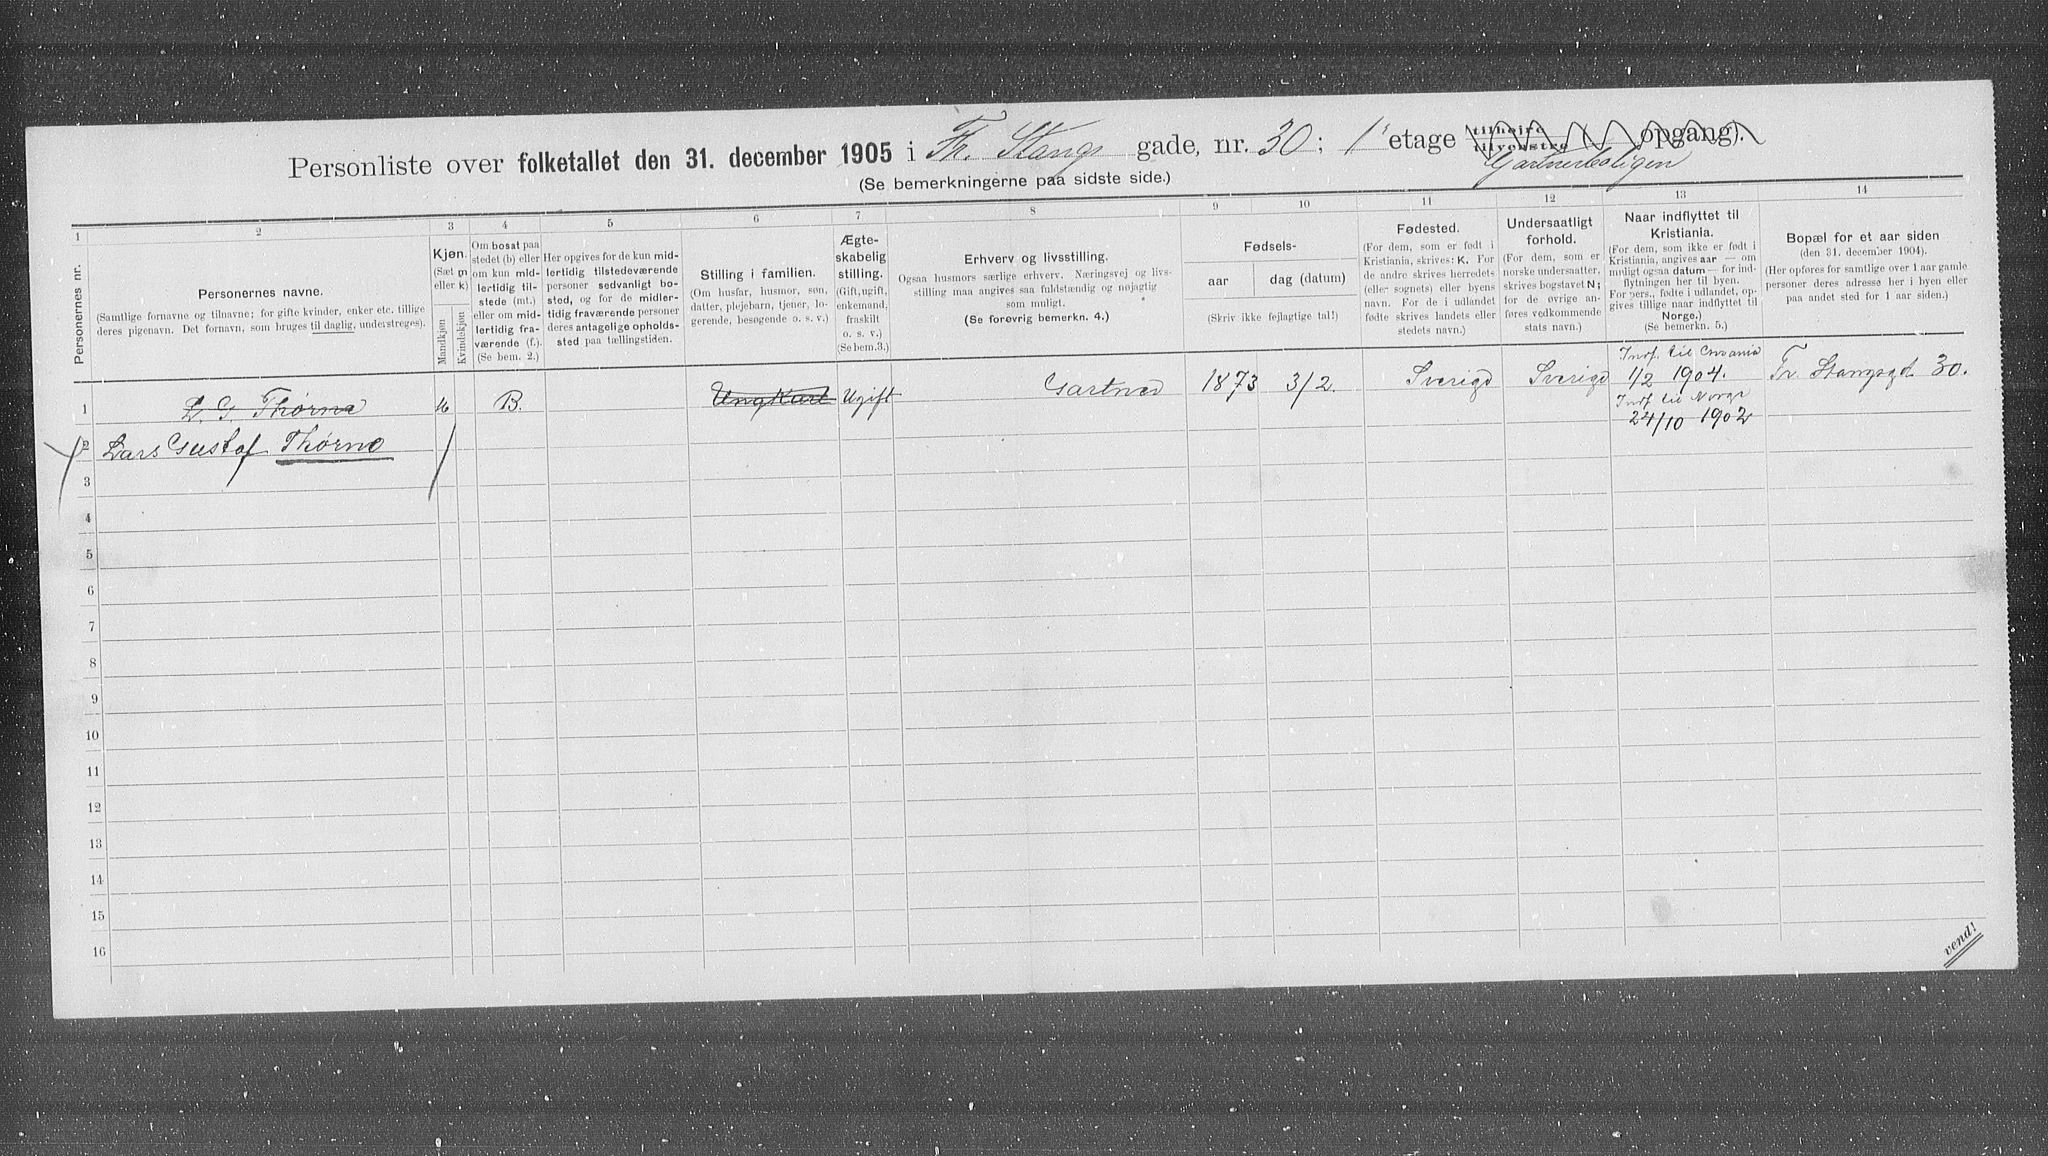 Personliste over folketallet den 31. december 1905 i Fr. Stangs gade, nr. 30; 1' etage tilhøire tilvenstre ( opgang).
Gartnerboligen
(Se bemerkningerne paa sidste side.)
1 2 3 4 5 6 7 8 9 10 11 12 13 14
Personernes nr.
Personernes navne.
(Samtlige fornavne og tilnavne; for gifte kvinder, enker etc. tillige
deres pigenavn. Det fornavn, som bruges til daglig, understreges).
Kjøn.
(Sæt m
eller k)
Mandkjøn
Kvindekjøn
Om bosat paa
stedet (b) eller
om kun mid-
lertidig til-
stede (mt.)
eller om mid-
lertidig fra-
værende (f.).
(Se bem. 2.)
Her opgives for de kun mid-
lertidig tilstedeværende
personer sedvanlig bo-
sted, og for de midler-
tidig fraværende personer
deres antagelige opholds-
sted paa tællingstiden.
Stilling i familien.
(Om husfar, husmor, søn,
datter, plejebarn, tjener, lo-
gerende, besøgende o. s. v.)
Ægte-
skabelig
stilling.
(Gift, ugift,
enkemand,
fraskilt
o. s. v.)
(Se bem.3.)
Erhverv og livsstilling.
Ogsaa husmors særlige erhverv. Næringsvej og livs-
stilling maa angives saa fuldstændig og nøjagtig
som muligt.
(Se forøvrig bemerkn. 4.)
Fødsels-
aar dag (datum)
(Skriv ikke fejlagtige tal!)
Fødested.
(For dem, som er født i
Kristiania, skrives: K. For
de andre skrives herredets
(eller sognets) eller byens
navn. For de i udlandet
fødte skrives landets eller
stedets navn.)
Undersaatligt
forhold.
(For dem, som er
norske undersaatter,
skrives bogstavet N;
for de øvrige an-
føres vedkommende
stats navn.)
Naar indflyttet til
Kristiania.
(For dem, som ikke er født i
Kristiania, angives aar — om
muligt ogsaa datum — for ind-
flytningen her til byen.
For pers., fødte i udlandet, op-
gives tillige naar indflyttet til
Norge.)
(Se bemerkn. 5.)
Bopæl for et aar siden
(den 31. december 1904).
(Her opføres for samtlige over 1 aar gamle
personer deres adresse her i byen eller
paa andet sted for 1 aar siden.)
1 L. G. Thørne M B. Ungkarl Ugift Gartner 1873 3/2. Sverige Sverige Indf. til Crania 1/2 1904. Fr. Stangsgd. 30.
Indf. til Norge
24/10 1902
2 Lars Gustaf Thørne
3
4
5
6
7
8
9
10
11
12
13
14
15
16
vend!